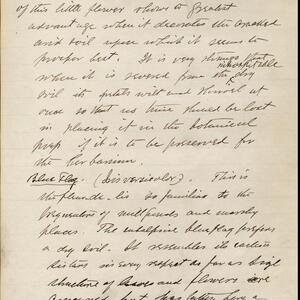 of this little flower shows to greatest
advantage when it decorates the crooked
and soil upon which it seems to
prosper best. It is very strange that
when it is severed from the inhospitable dry
soil its petals wilt and shrivel up
once so that no time should be lost
in placing it in the botanical
press if it is to be preserved for
the herbarium.
Blue Flag. (Iris versicolor). This is
the fleur-de-lis so familiar to the
frequenters of mill ponds and marshy
places. The blue flag prefers
a dry soil. It resembles its
sisters in every respect as far as
structure of leaves and flowers are
concerned, but has taken